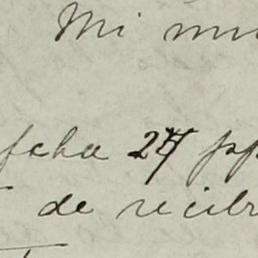 Mi mu
fcha 27 pp
de recibr